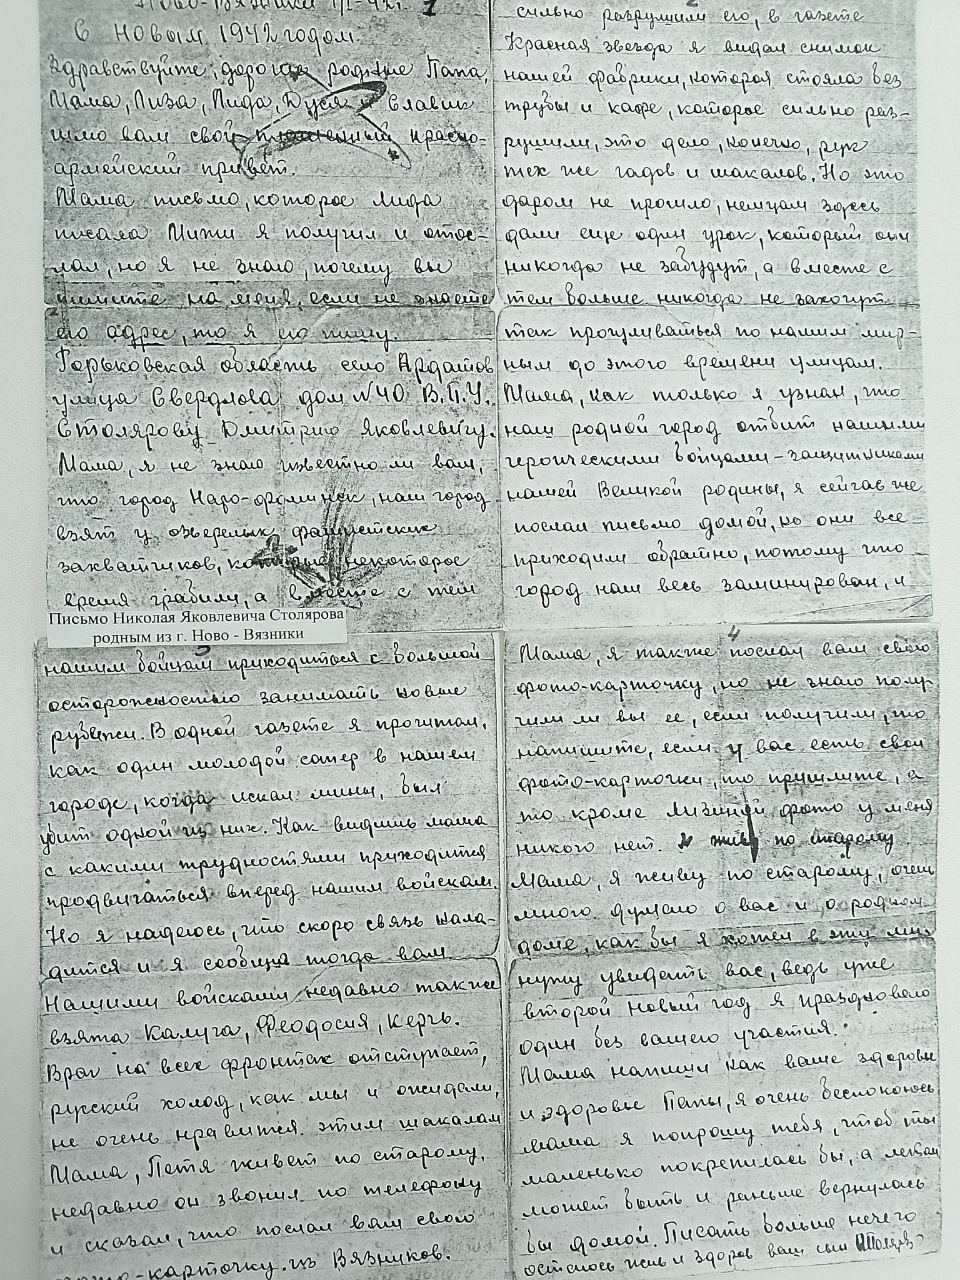 Ново-Вязники 1/I-42г. 1
С Новым 1942 годом.
Здравствуйте, дорогие родные Папа,
Мама, Лиза, Лида, Дуся и Славик
шлю вам свой пламенный красно-
армейский привет.
Мама письмо, которое Лида
писала Мити я получил и отос-
лал, но я не знаю, почему вы
пишите на меня, если не знаете
его адрес, то я его пишу.
Горьковская область село Ардатов
улица Свердлова дом №40 В.П.У.
Столярову Дмитрию Яковлевичу.
Мама, я не знаю известно ли вам,
что город Наро-Фоминск, наш город
взят у озверелых фашистских
захватчиков, которые некоторое
время грабили, а вместе с тем
Письмо Николая Яковлевича Столярова
родным из г. Ново - Вязники
2
сильно разрушили его, в газете
Красная звезда я видал снимок
нашей фабрики, которая стояла без
трубы и кафе, которое сильно раз-
рушили, это дело, конечно, рук
тех же гадов и шакалов. Но это
даром не прошло, немцам здесь
дали еще один урок, который они
никогда не забудут, а вместе с
тем больше никогда не захотят
так прогуливаться по нашим мир-
ным до этого времени улицам.
Мама, как только я узнал, что
наш родной город отбит нашими
героическими бойцами-защитниками
нашей Великой родины, я сейчас же
послал письмо домой, но они все
приходили обратно, потому что
город наш весь заминирован, и
3
нашим бойцам приходиться с большой
осторожностью занимать новые
рубежи. В одной газете я прочитал,
как один молодой сапер в нашем
городе, когда искал мины, был
убит одной из них. Как видишь мама
с какими трудностями приходится
продвигаться вперед нашим войскам.
Но я надеюсь, что скоро связь нала-
дится и я сообщу тогда вам.
Нашими войсками недавно также
взята Калуга, Феодосия, Керчь.
Враг на всех фронтах отступает,
русский холод, как мы и ожидали,
не очень нравится этим шакалам
Мама, Петя живет по старому,
недавно он звонил по телефону
и сказал, что послал вам свою
фото-карточку из Вязников.
4
Мама, я также послал вам свою
фото-карточку, но не знаю полу-
чили ли вы ее, если получили, то
напишите, если у вас есть свои
фото-карточки, то пришлите, а
то кроме Лизиной фото у меня
никого нет. Я живу по старому
Мама, я живу по старому, очень
много думаю о вас и о родном
доме, как бы я хотел в эту ми-
нуту увидать вас, ведь уже
второй Новый год я праздноваю
один без вашего участия.
Мама напиши как ваше здоровье
и здоровье Папы, я очень беспокоюсь
мама я попрошу тебя, чтоб ты
маленько покрепилась бы, а
может быть и раньше вернулась
бы домой. Писать больше нечего
остаюсь жив и здоров ваш сын